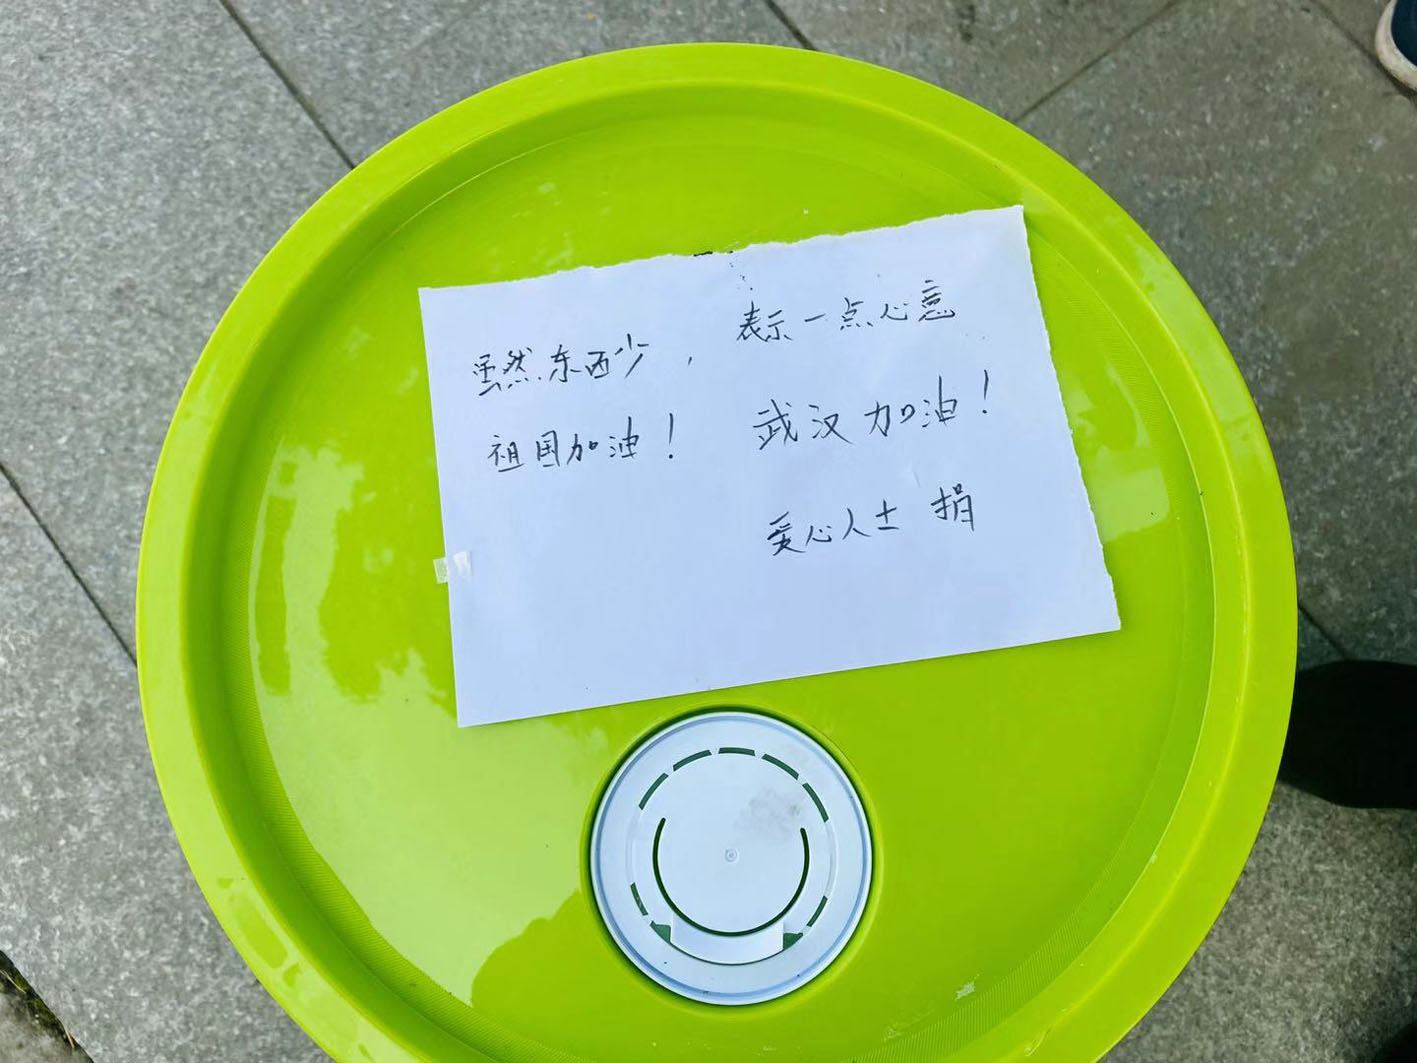 虽然东西少，表示一点心意
祖国加油！武汉加油！
爱心人士 捐